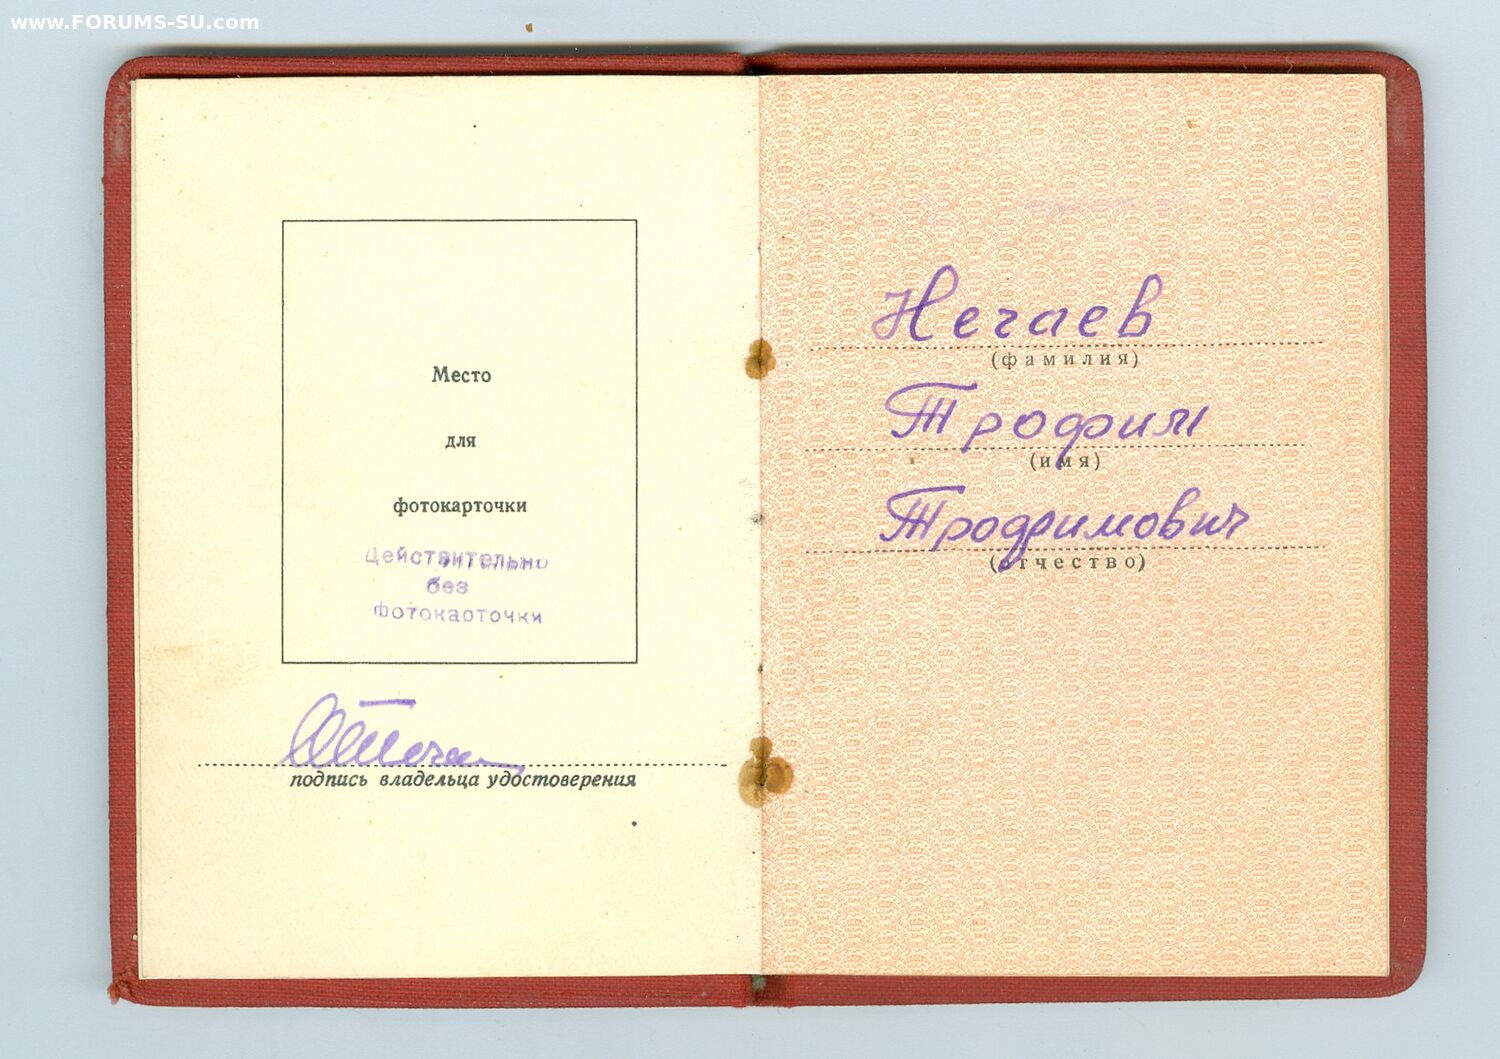 www.FORUMS-SU.com
Место
для
фотокарточки
Действительно
без
фотокарточки
подпись владельца удостоверения
Нечаев
(фамилия)
Трофим
(имя)
Трофимович
(отчество)